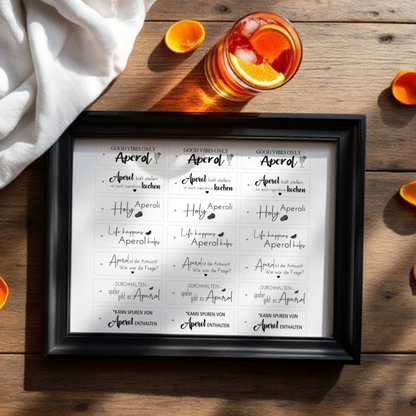 GOOD VIBES ONLY GOOD VIBES ONLY GOOD VIBES ONLY
Aperol Aperol Aperol
Aperol kalt stellen Aperol kalt stellen Aperol kalt stellen
ist auch irgendwie kochen ist auch irgendwie kochen ist auch irgendwie kochen
Holy Aperoli Holy Aperoli Holy Aperoli
Life happens Life happens Life happens
Aperol helps Aperol helps Aperol helps
Aperol ist die Antwort Aperol ist die Antwort Aperol ist die Antwort
Wie war die Frage? Wie war die Frage? Wie war die Frage?
DURCHHALTEN DURCHHALTEN DURCHHALTEN
später gibt es Aperol später gibt es Aperol später gibt es Aperol
"KANN SPUREN VON "KANN SPUREN VON "KANN SPUREN VON
Aperol ENTHALTEN Aperol ENTHALTEN Aperol ENTHALTEN